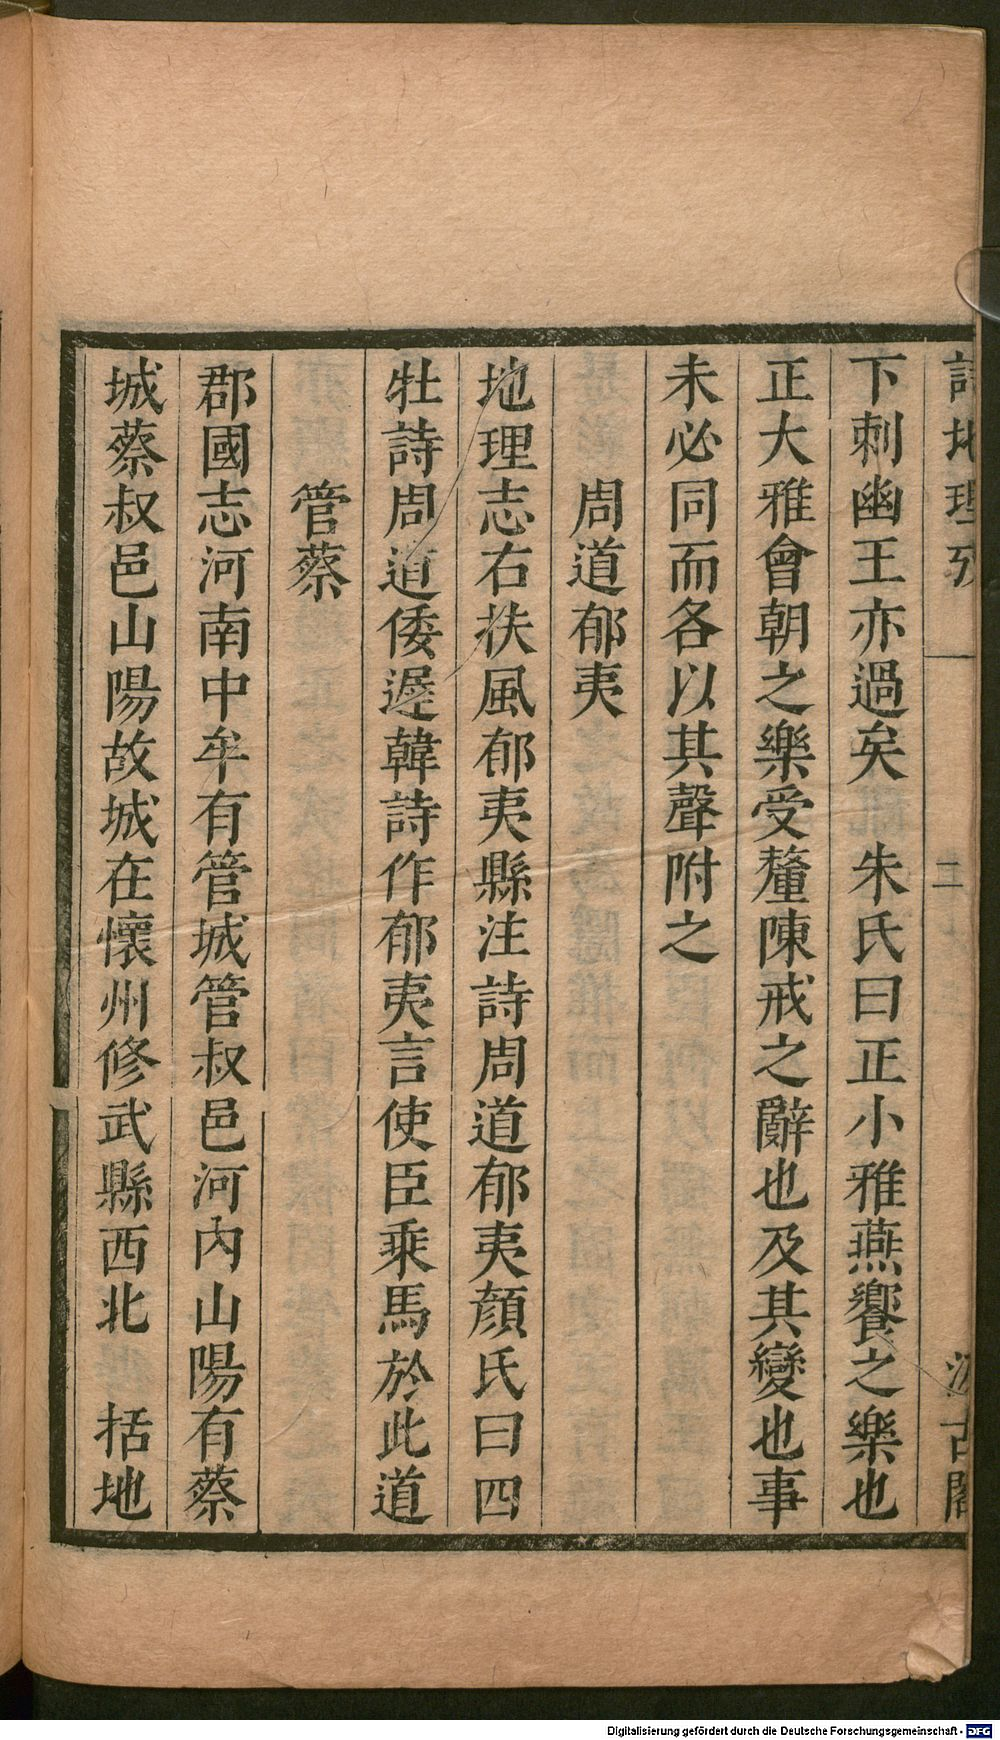 詩地理攷 二 汲古閣
下刺幽王亦過矣 朱氏曰正小雅燕饗之樂也
正大雅會朝之樂受釐陳戒之辭也及其變也事
未必同而各以其聲附之
周道郁夷
地理志右扶風郁夷縣注詩周道郁夷顏氏曰四
牡詩周道倭遲韓詩作郁夷言使臣乘馬於此道
管蔡
郡國志河南中牟有管城管叔邑河內山陽有蔡
城蔡叔邑山陽故城在懷州修武縣西北 括地
Digitalisierung gefördert durch die Deutsche Forschungsgemeinschaft - DFG